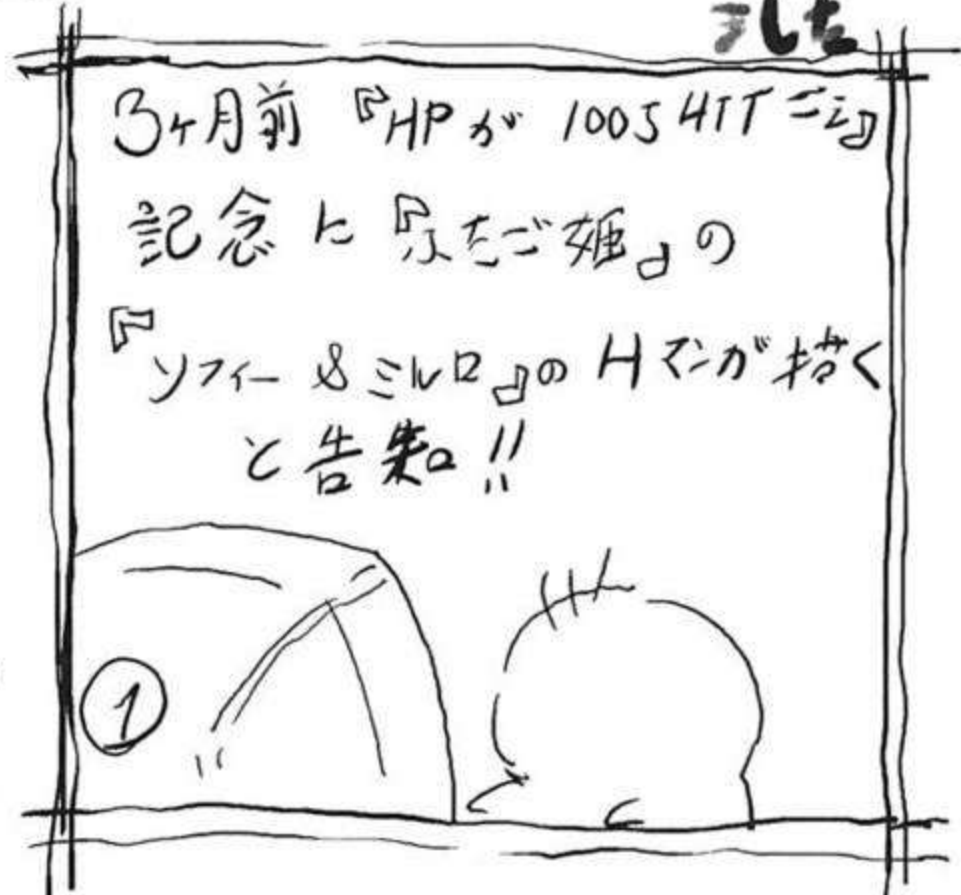 ました
3ヶ月前『HPが100万HITごえ』
記念に『ふたご姫』の
『ソフィー&ミルロ』のHマンガ描く
と告知!!
1